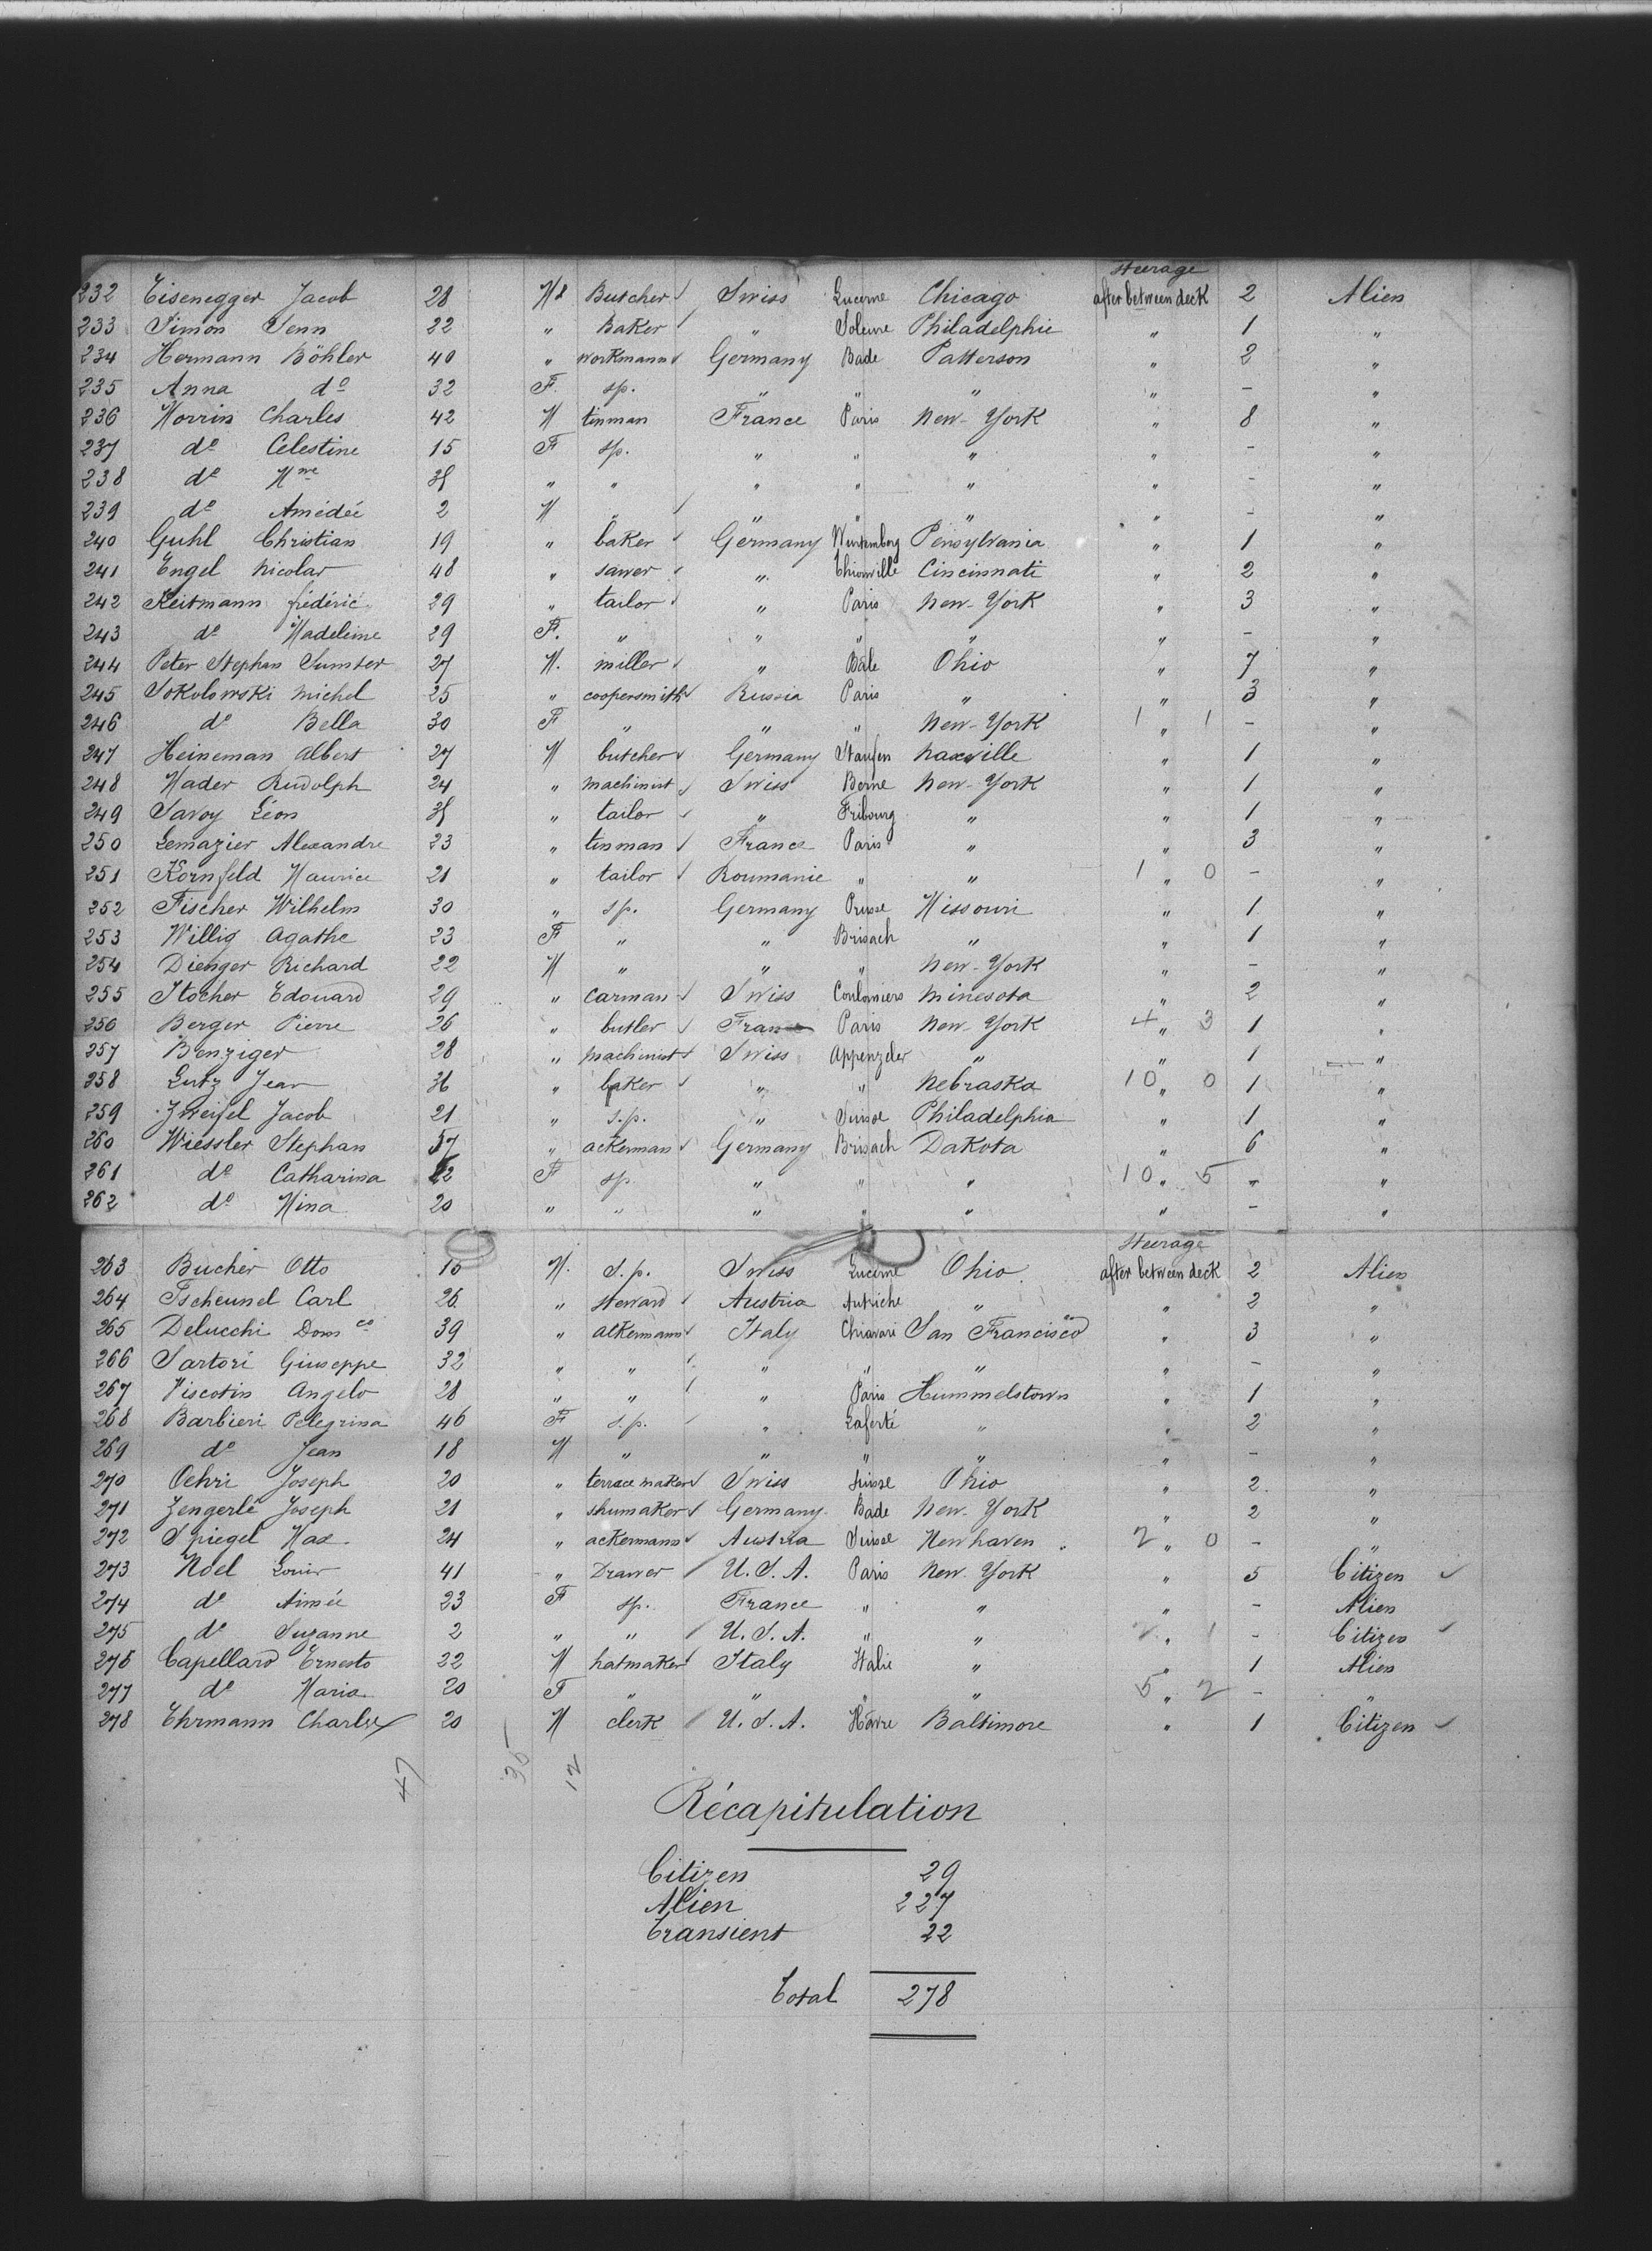 Steerage
232 Eisenegger Jacob 28 Ml Butcher Swiss Lucerne Chicago after between deck 2 Alien
233 Simon Senn 22 " Baker " Soleure Philadelphie " 1 "
234 Hermann Böhler 40 " workmann Germany Bade Patterson " 2 "
235 Anna do 32 F. sp. " " " " - "
236 Morrin Charles 42 M tinman France Paris New-York " 8 "
237 do Celestine 15 F sp. " " " " - "
238 do Mme 38 " " " " " " - "
239 do Amédée 2 M " " " " " - "
240 Guhl Christian 19 " baker Germany Wurtemberg Pensylvania " 1 "
241 Engel Nicolas 48 " sawer " Thionville Cincinnati " 2 "
242 Reitmann frédéric 29 " tailor " Paris New-York " 3 "
243 do Madeleine 29 F. " " " " " - "
244 Peter Stephan Sumser 27 M. miller " Bale Ohio " 7 "
245 Sokolowski Michel 25 " coopersmith Russia Paris " " 3 "
246 do Bella 30 F " " " New-York 1 " 1 - "
247 Heineman Albert 27 M butcher Germany Staufen Naxville " 1 "
248 Mader Rudolph 24 " machinist Swiss Berne New-York " 1 "
249 Savoy Léon 38 " tailor " Fribourg " " 1 "
250 Lemazier Alexandre 23 " tinman France Paris " " 3 "
251 Kornfeld Maurice 21 " tailor Roumanie " " 1 " 0 - "
252 Fischer Wilhelm 30 " sp. Germany Prusse Missouri " 1 "
253 Willig Agathe 23 F " " Brisach " " 1 "
254 Dienger Richard 22 M " " " New-York " - "
255 Stocher Edouard 29 " carman Swiss Coulomiers Minesota " 2 "
256 Berger Pierre 26 " butler France Paris New-York 4 " 3 1 "
257 Benziger 28 " machinist Swiss Appenzeler " " 1 "
258 Lutz Jean 36 " baker " " Nebraska 10 " 0 1 "
259 Zweifel Jacob 21 " s.p. " Suisse Philadelphia " 1 "
260 Wiessler Stephan 57 " ackerman Germany Brisach Dakota " 6 "
261 do Catharina 22 F sp " " " 10 " 5 - "
262 do Mina 20 " " " " " " - "
Steerage
263 Bucher Otto 15 M. s.p. Swiss Lucerne Ohio after between deck 2 Alien
264 Tscheunel Carl 26 " steward Austria Autriche " " 2 "
265 Delucchi Domco 39 " alkermann Italy Chiavari San Francisco " 3 "
266 Sartori Giuseppe 32 " " " " " " - "
267 Viscotin Angelo 28 " " " Paris Hummelstown " 1 "
268 Barbieri Pelegrina 46 F s.p. " Laferté " " 2 "
269 do Jean 18 M " " " " " - "
270 Oehri Joseph 20 " terrace maker Swiss Suisse Ohio " 2 "
271 Zengerlé Joseph 21 " shumaker Germany Bade New-York " 2 "
272 Spiegel Max 24 " ackermann Austria Suisse Newhaven 2 " 0 - "
273 Noel Louis 41 " Drawer U.S.A. Paris New-York " 5 Citizen
274 do Aimée 23 F sp. France " " " - Alien
275 do Suzanne 2 " " U.S.A. " " " 1 - Citizen
276 Capellaro Ernesto 22 M hatmaker Italy Italie " " 1 Alien
277 do Maria 20 F " " " " 5 " 2 - "
278 Ehrmann Charles 20 M clerk U.S.A. Havre Baltimore " 1 Citizen
47 35 12
Récapitulation
Citizen 29
Alien 227
Transient 22
Total 278